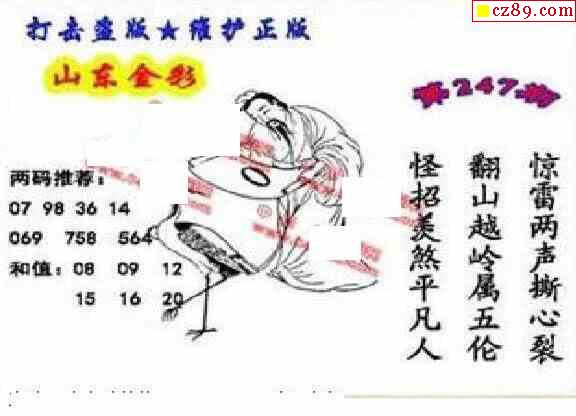 cz89.com
打击盗版★维护正版
山东金彩
第247期
两码推荐:
07 98 36 14
069 758 564
和值: 08 09 12
15 16 20
惊雷两声撕心裂
翻山越岭属五伦
怪招羡煞平凡人